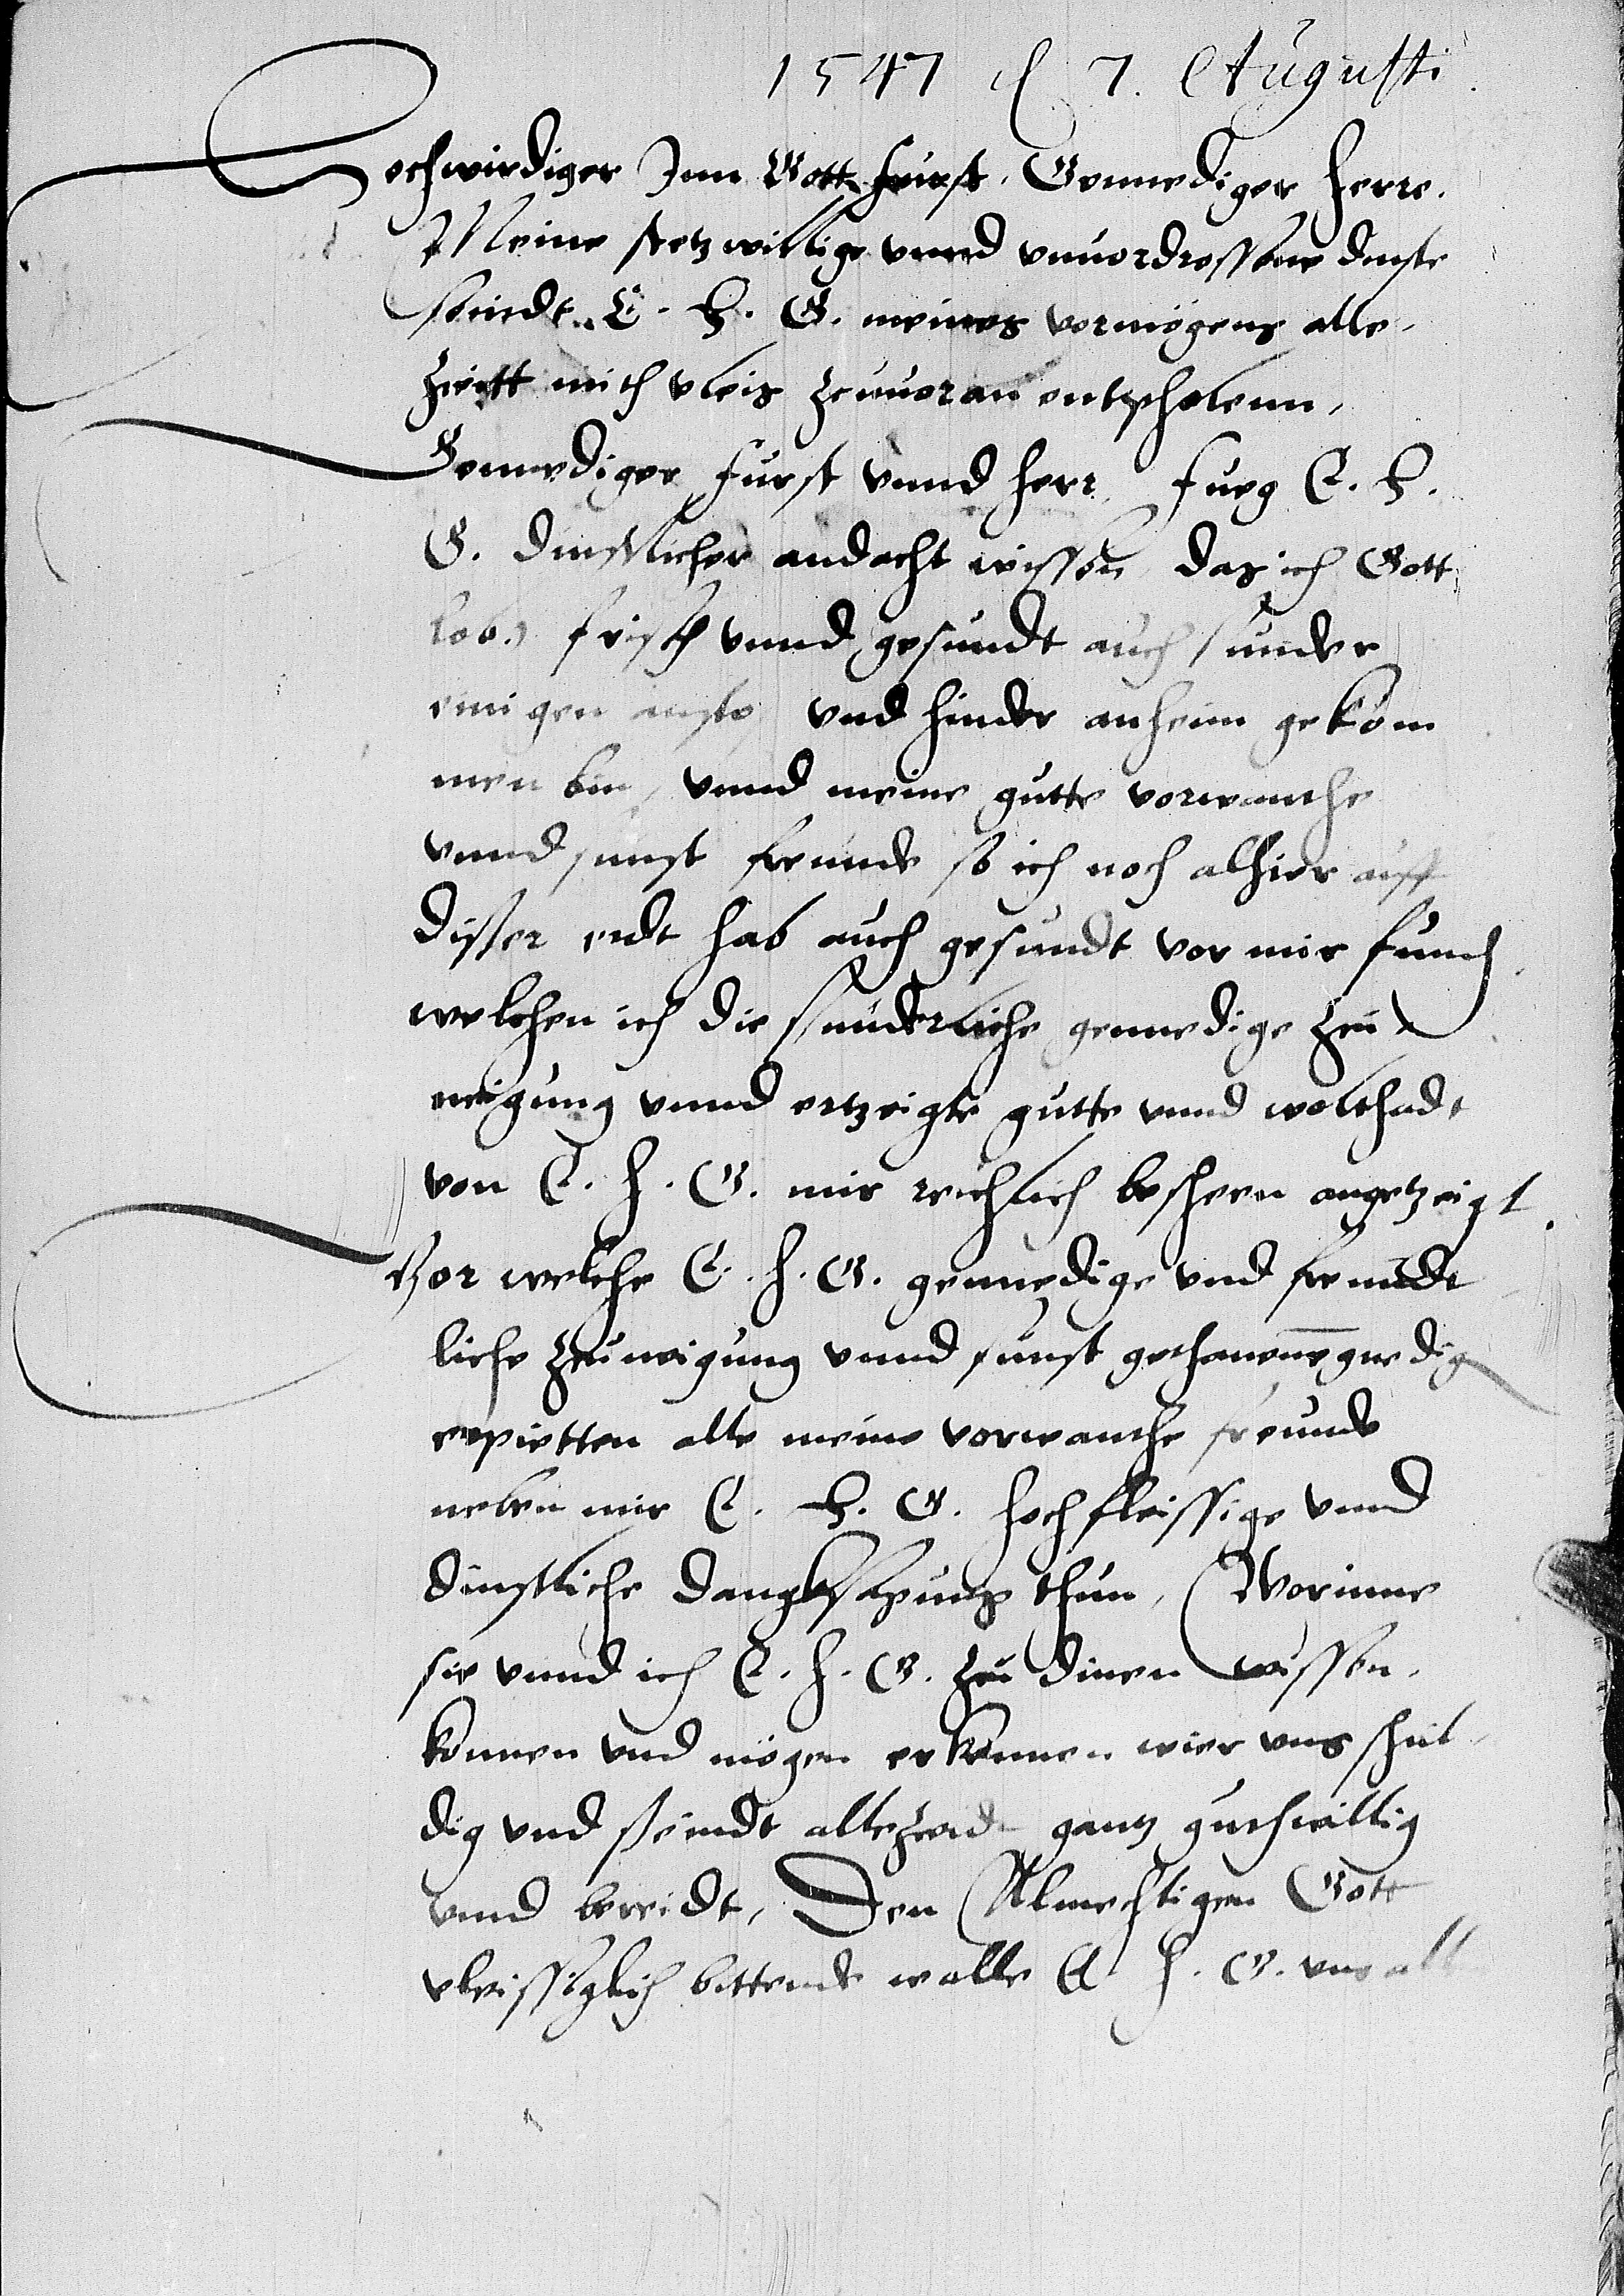 1547 d 7. Augusti
Hochwirdiger Inn Gott Furst, Gennediger herre.
Meine stetz willige vnnd vnuordrossene dinste
seindt E. H. G. meines vormögens alle,
Zeitt mith vleis zeuuoran entpholenn,
Gennediger Furst vnnd herr, fueg E. H.
G. dinstlicher andacht wissen das ich Gott
lob. frisch vnnd gesundt auch sunder
einigen ansto vnd hinder anheim gekom
men bin, vnnd meine gutte vorwanthe
vnnd sunst freunde so ich noch alhier auff
disser erdt hab auch gesundt vor mir funden
welchen ich die sunderliche gennedige zeu
neigung vnnd ertzeigte gutte vnnd wolthadt
von E. H. G. mir reichlich beschern angetzeigt.
Vor welche E. H. G. gennedige vnd freundt
liche zeuneigung vnnd sunst gethanene gnedig
erpietten alle meine vorwanthe freunde
neben mir E. H. G. hochfleissige vnnd
dinstliche dangksagung thun, Worinne
sie vnnd ich E. H. G. zeu dinen wissen,
konnen vnd mögen erkennen wier vns schul
dig vnd seindt allezeidt gantz guthwillig
vnnd bereidt, Den Almechtigen Gott
vleissiglich bittende walle E. H. G. vns all